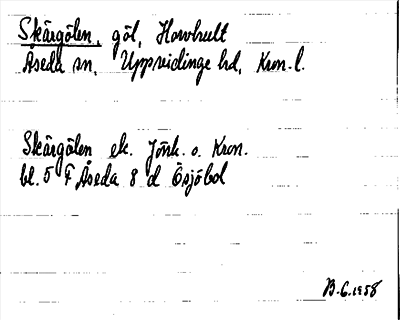 Skärgölen, göl, Horvhult
Åseda sn, Uppvidinge hd, Kron. l.
Skärgölen ek. Jönk. o. Kron.
bl. 5 F Åseda 8 d Ösjöbol
B.G. 1958